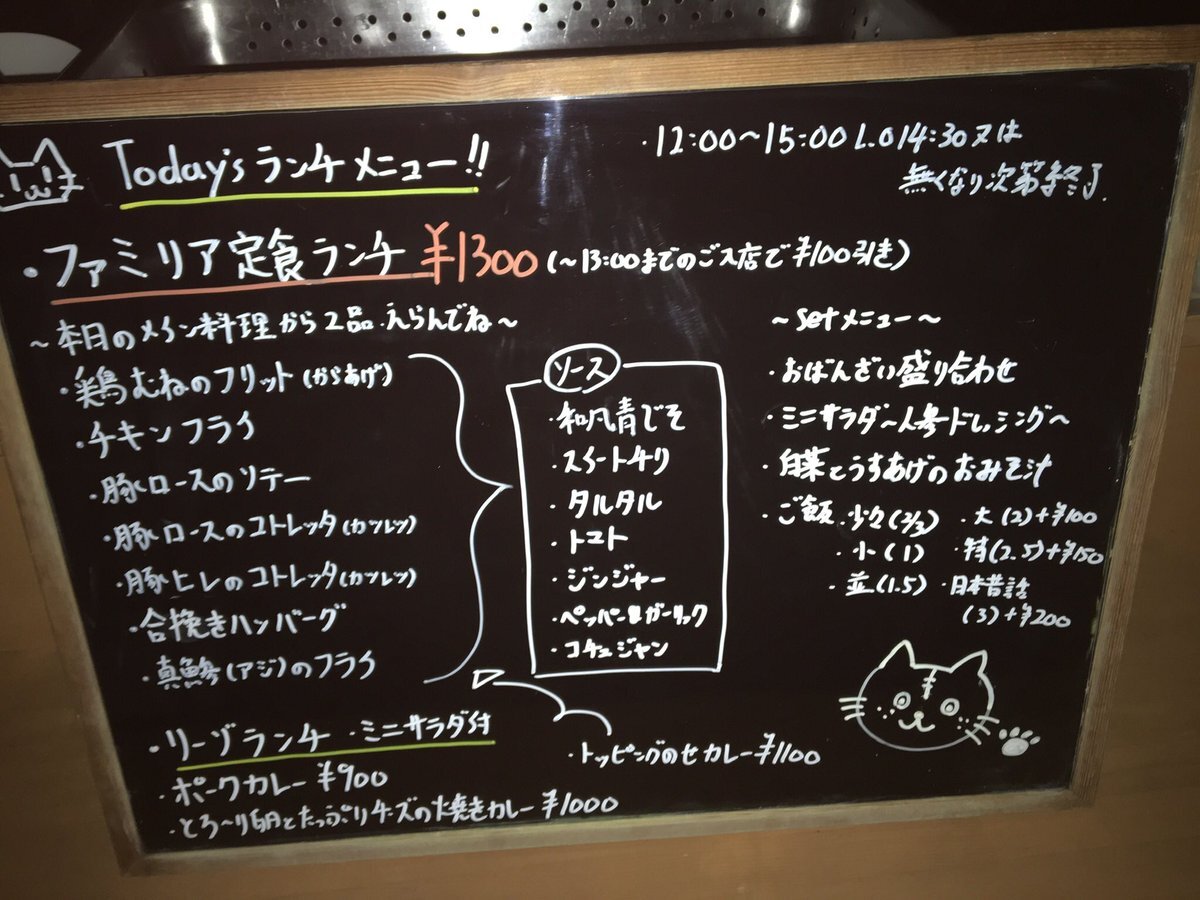 Today's ランチメニュー!!
・12:00〜15:00 L.O 14:30 又は
無くなり次第終了.
・ファミリア定食ランチ ¥1300 (〜13:00までのご入店で¥100引き)
〜本日のメイン料理から2品えらんでね〜
・鶏むねのフリット(からあげ)
・チキンフライ
・豚ロースのソテー
・豚ロースのコトレッタ(カツレツ)
・豚ヒレのコトレッタ(カツレツ)
・合挽きハンバーグ
・真鯵(アジ)のフライ
ソース
・和風青じそ
・スイートチリ
・タルタル
・トマト
・ジンジャー
・ペッパー&ガーリック
・コチュジャン
〜setメニュー〜
・おばんざい盛り合わせ
・ミニサラダ〜人参ドレッシング〜
・白菜とうすあげのおみそ汁
・ご飯・少々(2/3) ・大(2)+¥100
・小(1) ・特(2.5)+¥150
・並(1.5) ・日本昔話
(3)+¥200
・リーゾランチ ・ミニサラダ付
・ポークカレー ¥900
・とろ〜り卵とたっぷりチーズの焼きカレー ¥1000
・トッピングのせカレー ¥1100